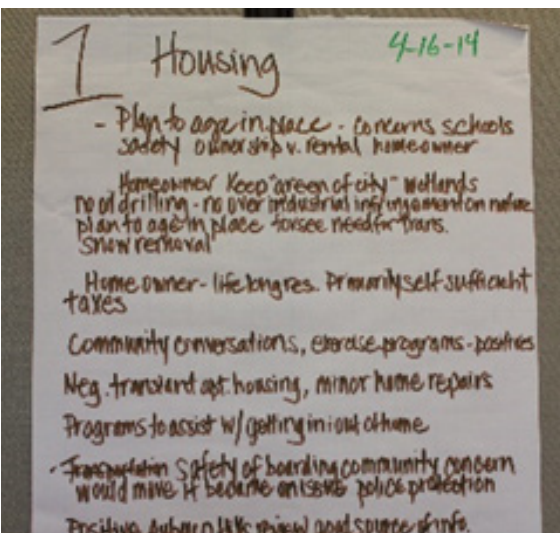 1 Housing 4-16-14
- Plan to age in place - concerns schools
safety ownership v. rental homeowner
Homeowner Keep "green of city" - wetlands
no oil drilling - no over industrial infringement on nature
plan to age in place forsee need for trans.
snow removal
Home owner - lifelong res. Primarily self sufficient
taxes
Community conversations, exercise programs - positives
Neg. transient apt. housing, minor home repairs
Programs to assist w/ getting in + out of home
Safety of boarding community concern
would move if became an issue police protection
Positive review good source of info.